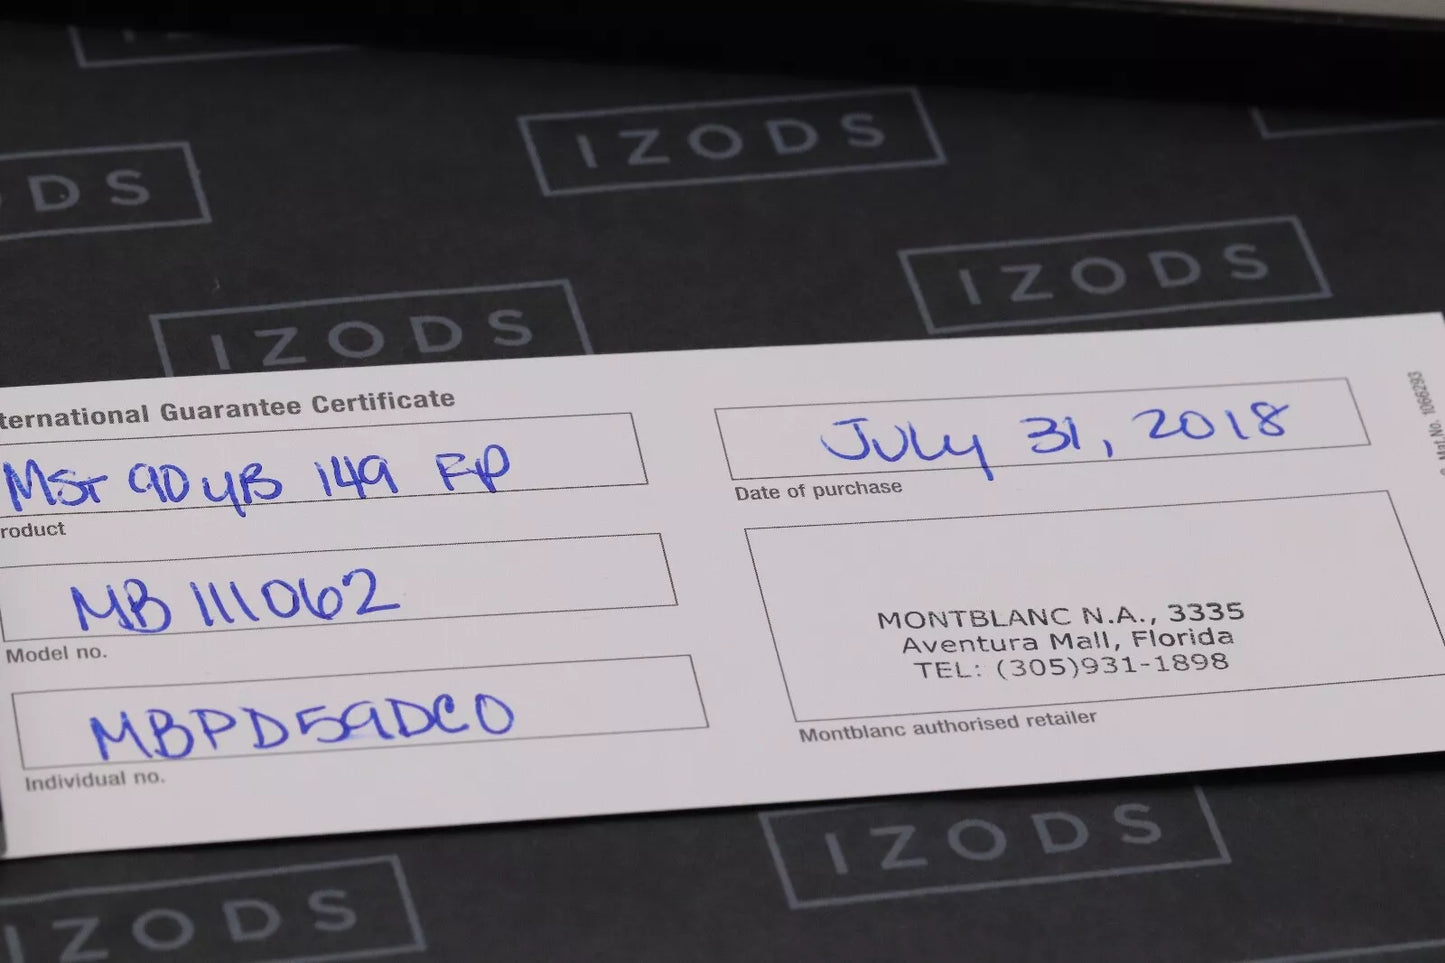 IZODS
DS
IZODS
IZODS
ternational Guarantee Certificate
MST 90 YB 149 FP
roduct
MB 111062
Model no.
MBPD59DC0
Individual no.
July 31, 2018
Date of purchase
MONTBLANC N.A., 3335
Aventura Mall, Florida
TEL: (305)931-1898
Montblanc authorised retailer
Mat No. 1066293
IZODS
IZODS